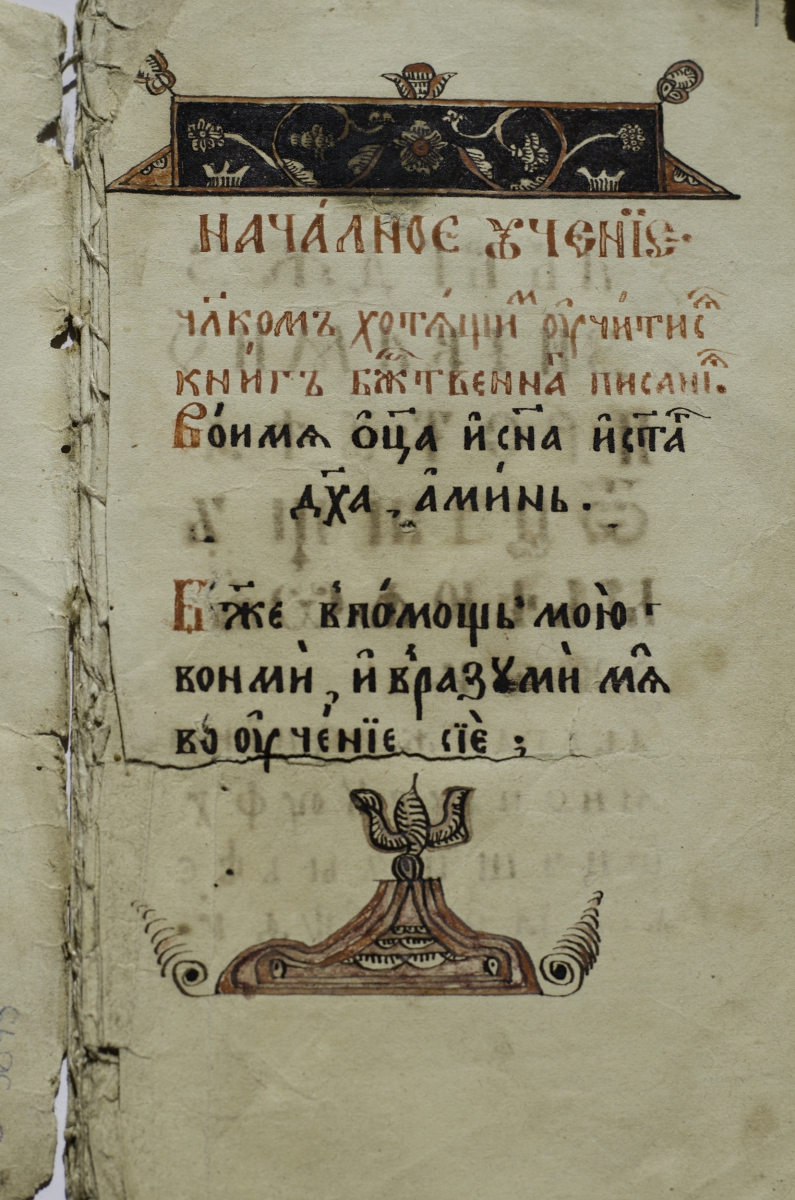 НАЧА́ЛНОЕ ꙊЧЕНЇЕ·
чл҃комъ хотѧ́щиⷨ ᲂу҆чи́тисѧ
кни́гъ бж҃твеннаⷢ писанїѧ.
Во́имѧ ѻ҆ц҃а и҆сн҃а и҆ст҃аⷢ
дх҃а , а҆ми́нь .
Бж҃е впо́мощь мою̀
вонмѝ , и҆ вразꙋмѝ мѧ̀
во ᲂу҆че́нїе сїѐ ;